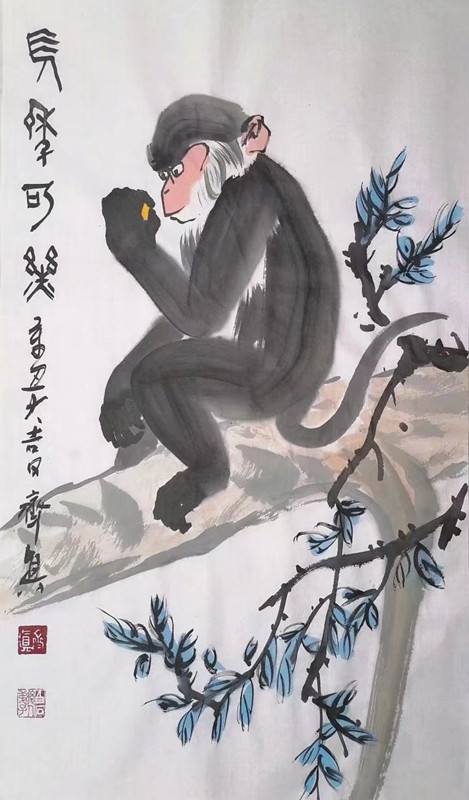 長年可樂 辛丑大吉日齊眞